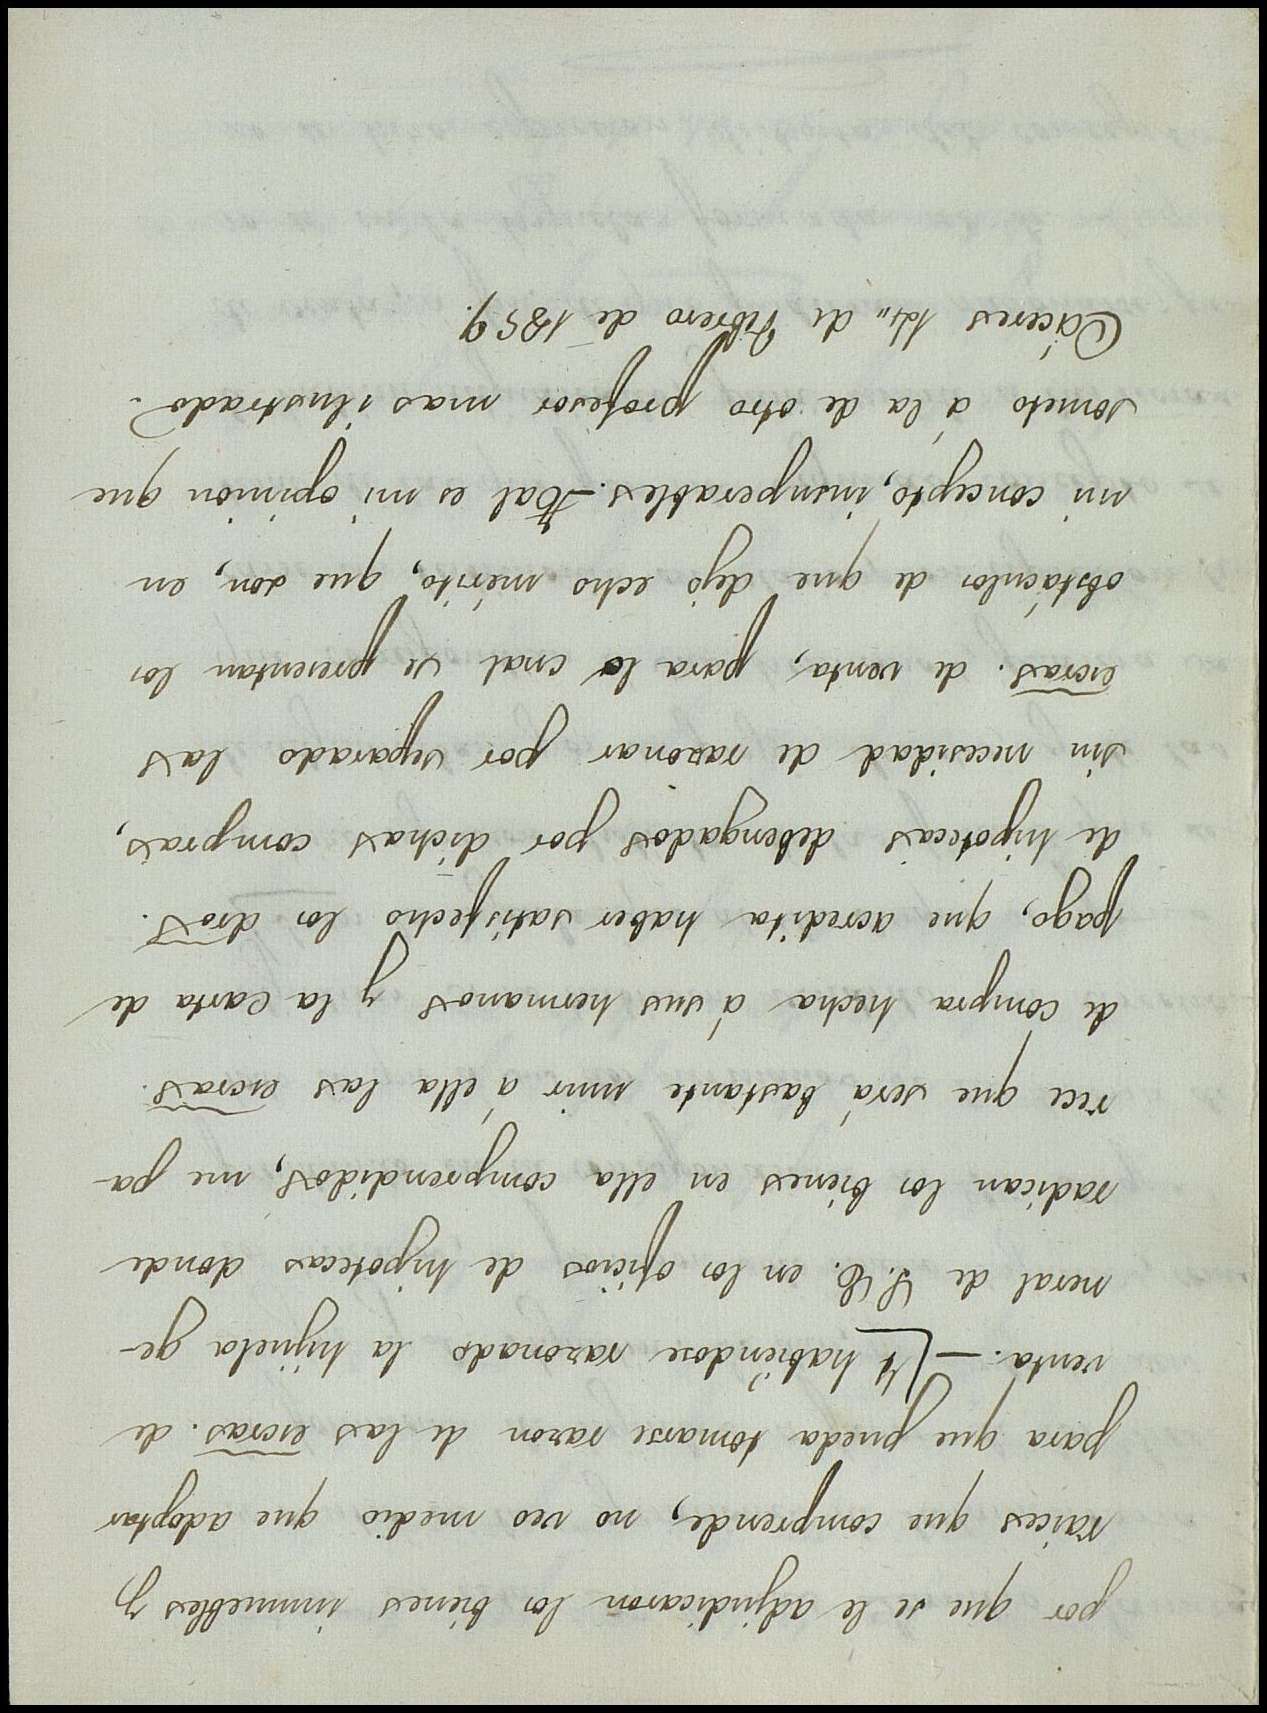 por que se le adjudicaron los bienes inmuebles y
raices que comprende, no veo medio que adoptar
para que pueda tomarse razon de las escras. de
venta. — Y habiéndose razonado la hijuela ge-
neral de S.E. en los oficios de hipotecas donde
radican los bienes en ella comprendidos, me pa-
rece que será bastante unir á élla las escras.
de compra hecha á sus hermanos y la carta de
pago, que acredita haber satisfecho los dros.
de hipotecas debengados por dichas compras,
sin necesidad de razonar por separado las
escras. de venta, para lo cual se presentan los
obstáculos de que dejo echo mérito, que son, en
mi concepto, insuperables. Tal es mi opinion que
someto á la de otro profesor mas ilustrado.
Cáceres de Febrero de 1859.